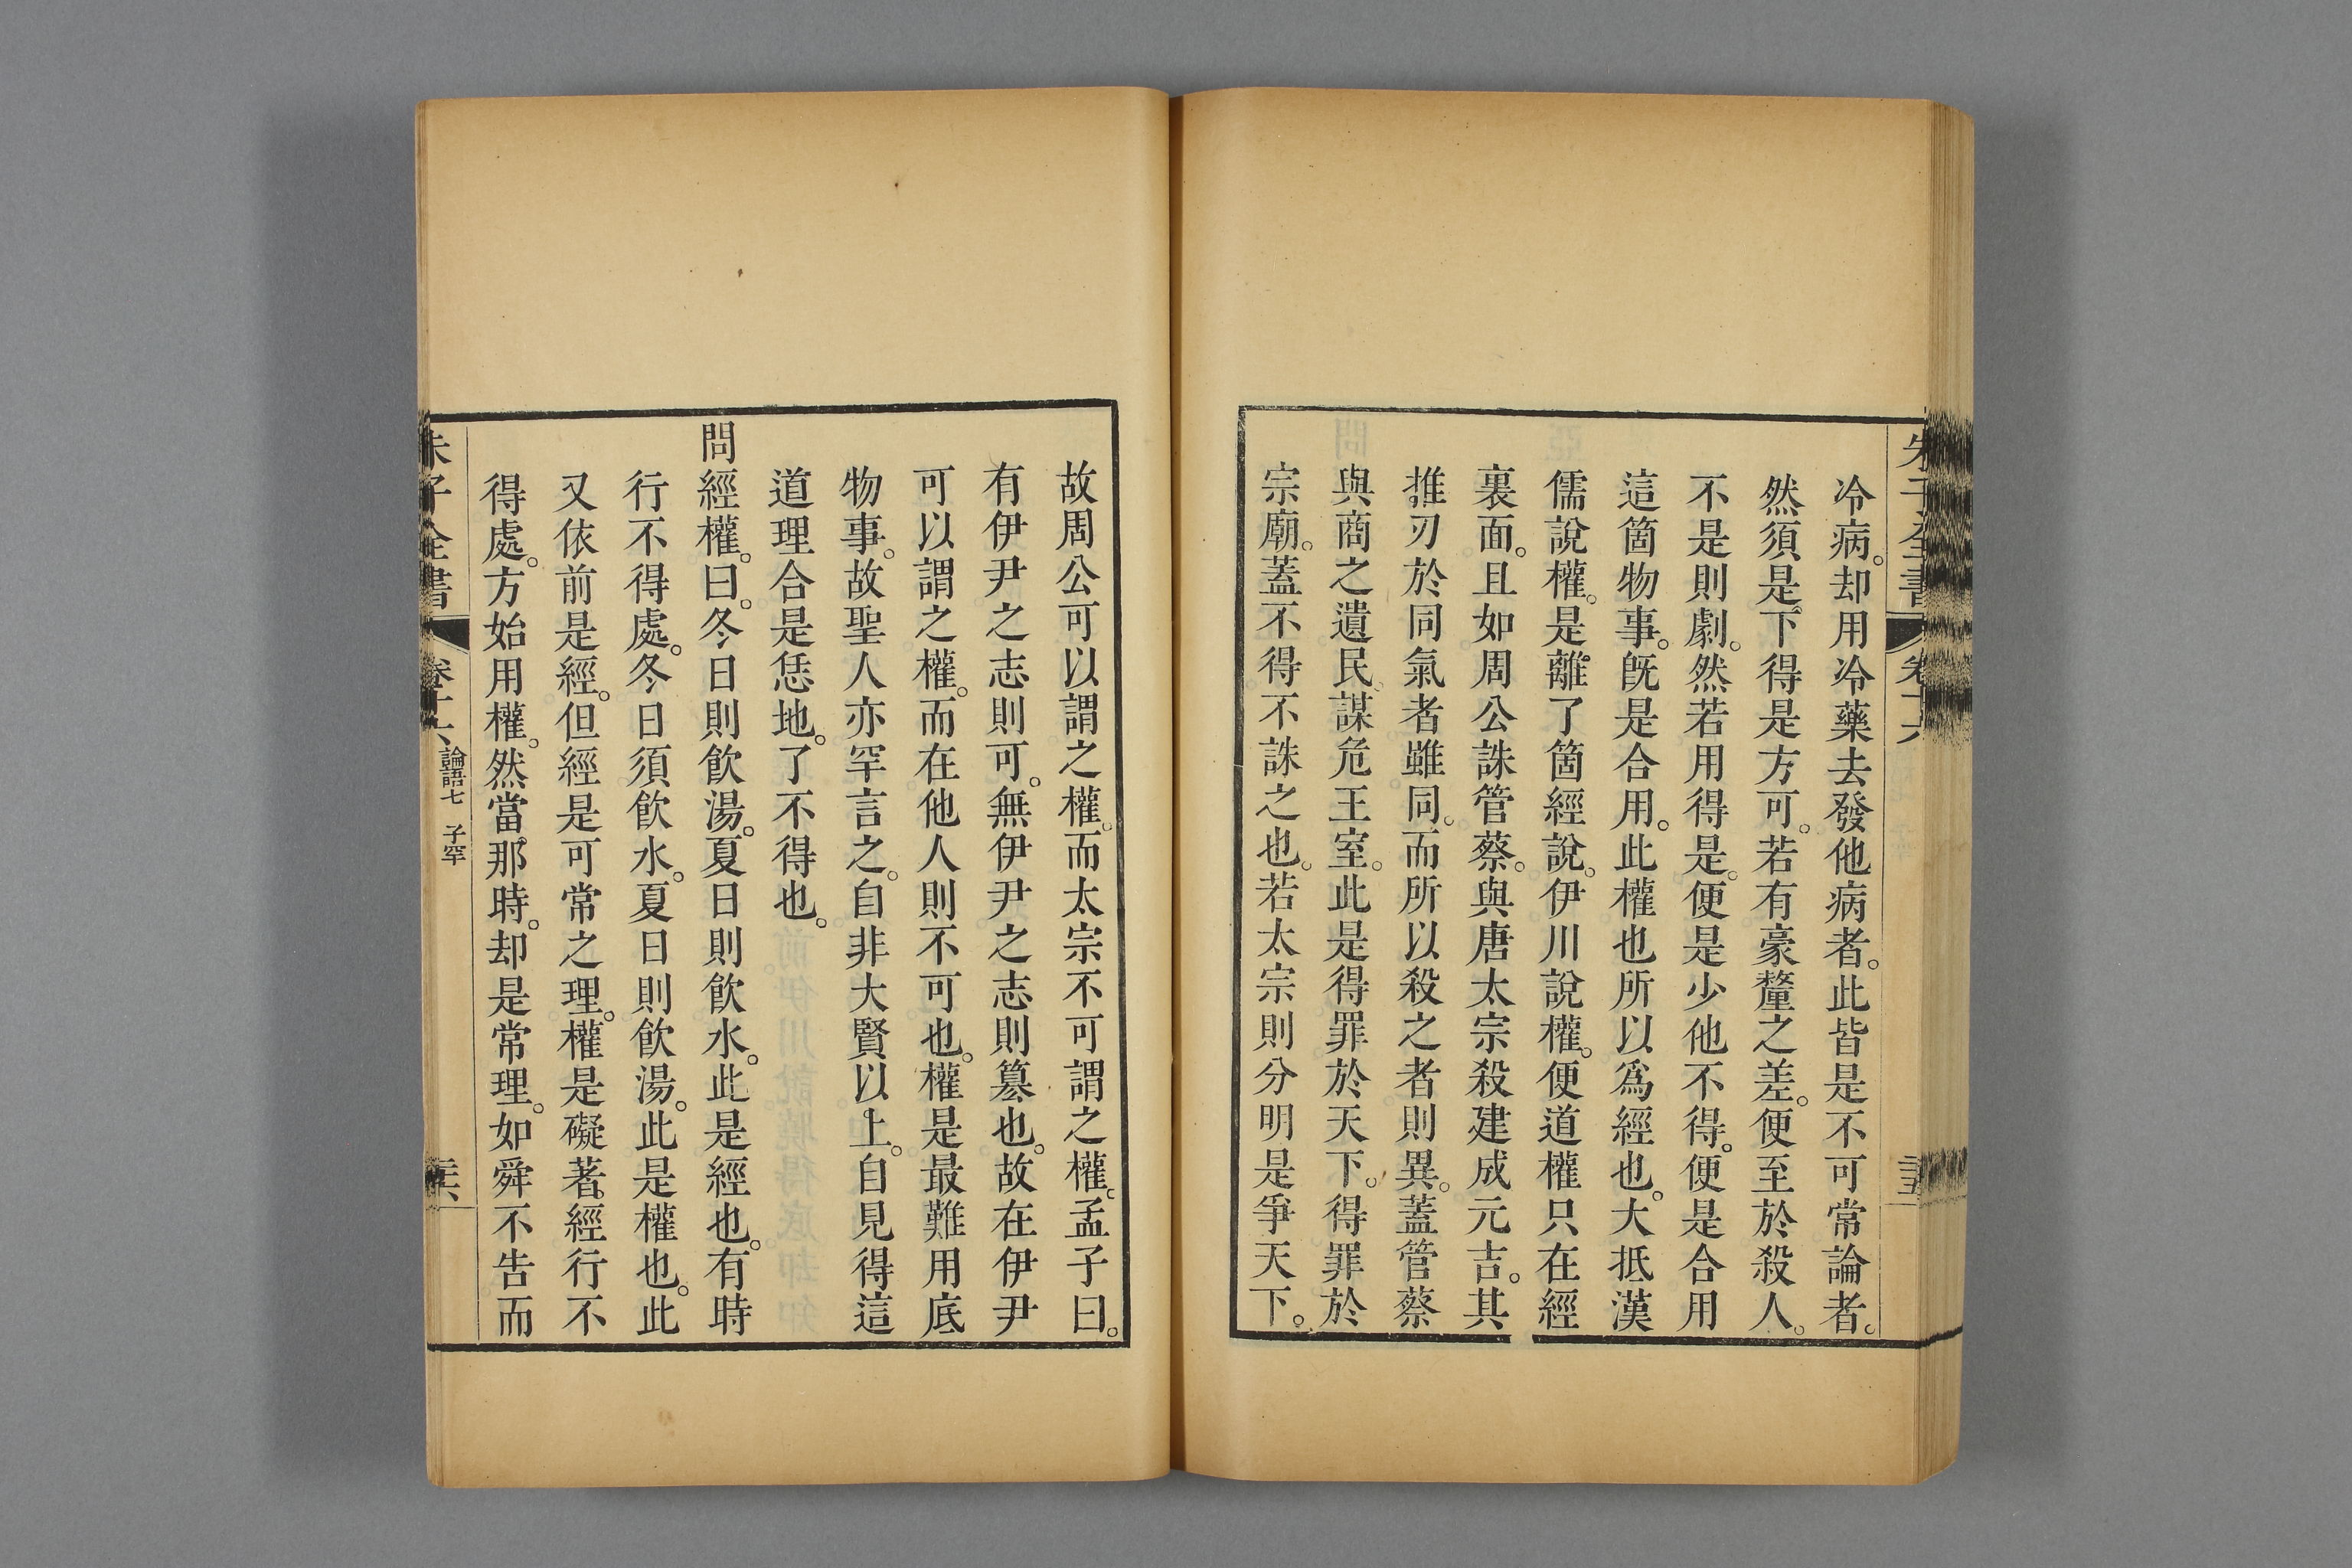 朱子全書 卷十六
冷病。却用冷藥去發他病者。此皆是不可常論者。
然須是下得是方可。若有豪釐之差。便至於殺人。
不是則劇。然若用得是。便是少他不得。便是合用
這箇物事。旣是合用。此權也所以爲經也。大抵漢
儒說權。是離了箇經說。伊川說權。便道權只在經
裏面。且如周公誅管蔡。與唐太宗殺建成元吉。其
推刃於同氣者雖同。而所以殺之者則異。蓋管蔡
與商之遺民謀危王室。此是得罪於天下。得罪於
宗廟。蓋不得不誅之也。若太宗則分明是爭天下。
故周公可以謂之權。而太宗不可謂之權。孟子曰。
有伊尹之志則可。無伊尹之志則簒也。故在伊尹
可以謂之權。而在他人則不可也。權是最難用底
物事。故聖人亦罕言之。自非大賢以上。自見得這
道理合是恁地。了不得也。
問經權。曰。冬日則飮湯。夏日則飮水。此是經也。有時
行不得處。冬日須飮水。夏日則飮湯。此是權也。此
又依前是經。但經是可常之理。權是礙著。經行不
得處。方始用權。然當那時。却是常理。如舜不告而
朱子全書 卷十六 論語七 子罕